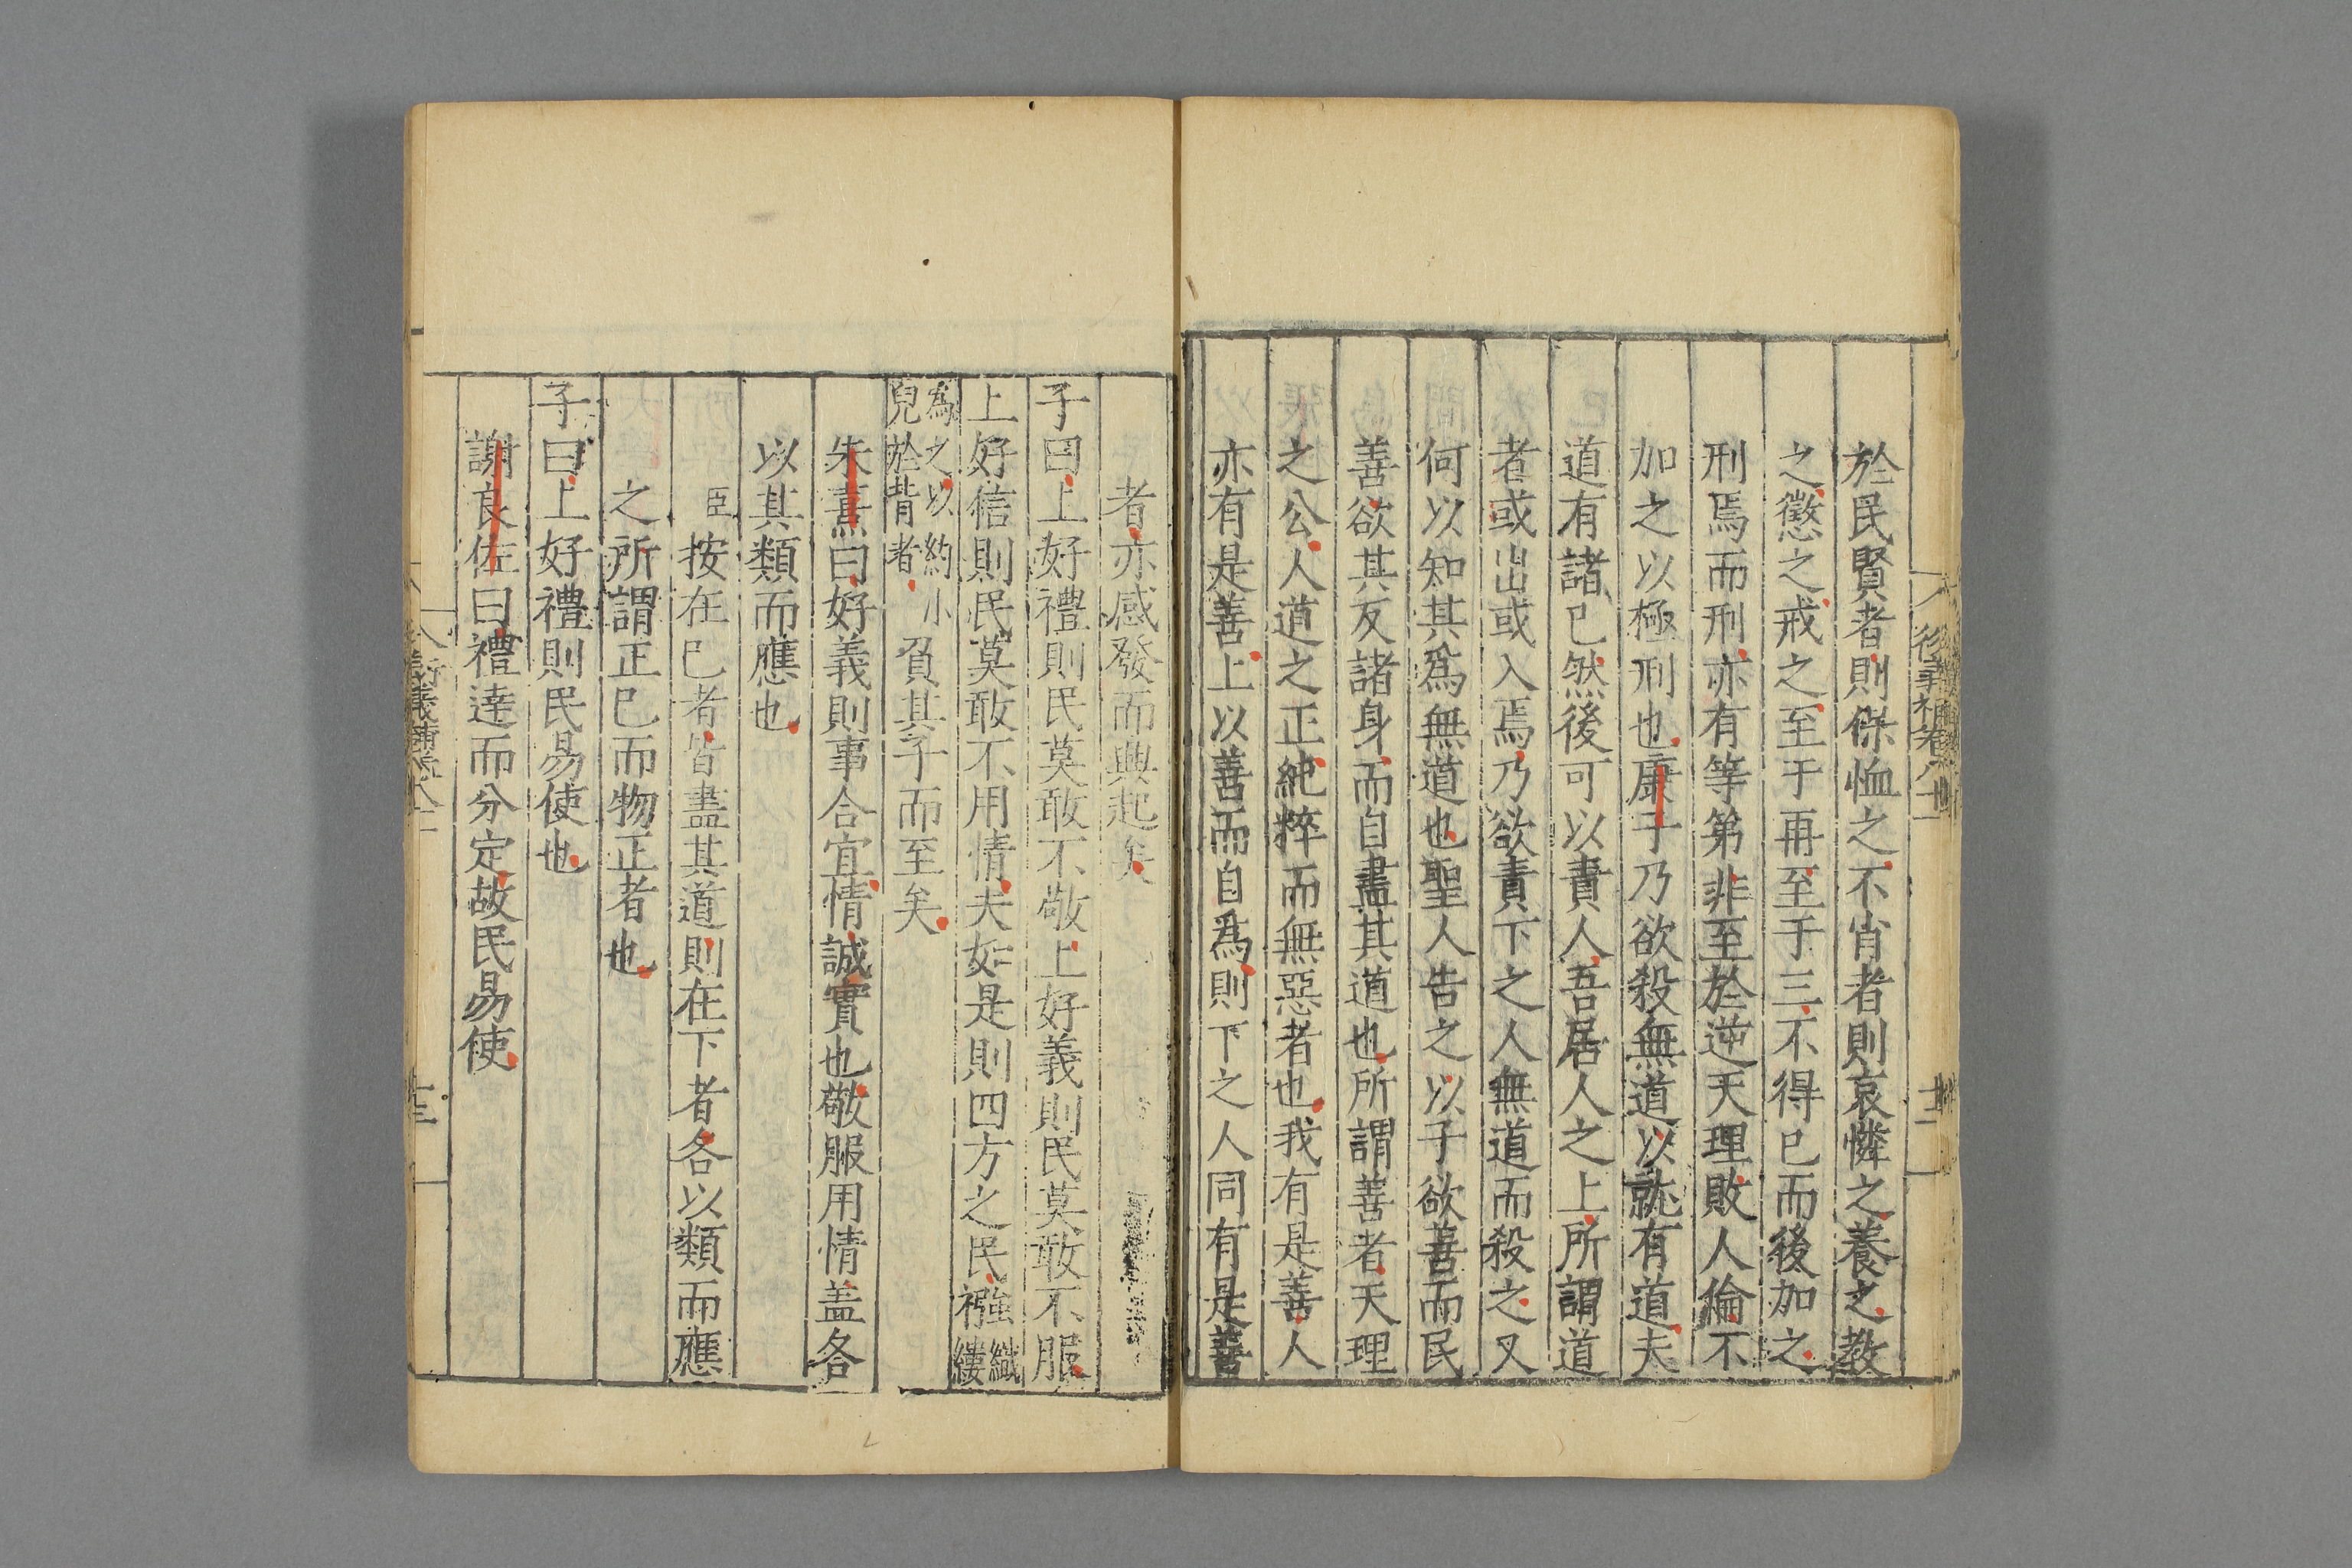 於民賢者則保恤之不肖者則哀憐之養之教
之懲之戒之至于再至于三不得已而後加之
刑焉而刑亦有等第非至於逆天理敗人倫不
加之以極刑也康子乃欲殺無道以就有道夫
道有諸已然後可以責人吾居人之上所謂道
者或出或入焉乃欲責下之人無道而殺之又
何以知其爲無道也聖人告之以子欲善而民
善欲其反諸身而自盡其道也所謂善者天理
之公人道之正純粹而無惡者也我有是善人
亦有是善上以善而自爲則下之人同有是善
者亦感發而興起矣
子曰上好禮則民莫敢不敬上好義則民莫敢不服
上好信則民莫敢不用情夫如是則四方之民襁織縷
為之以約小兒於背者負其子而至矣
朱熹曰好義則事合宜情誠實也敬服用情盖各
以其類而應也
臣按在已者皆盡其道則在下者各以類而應
之所謂正已而物正者也
子曰上好禮則民易使也
謝良佐曰禮達而分定故民易使